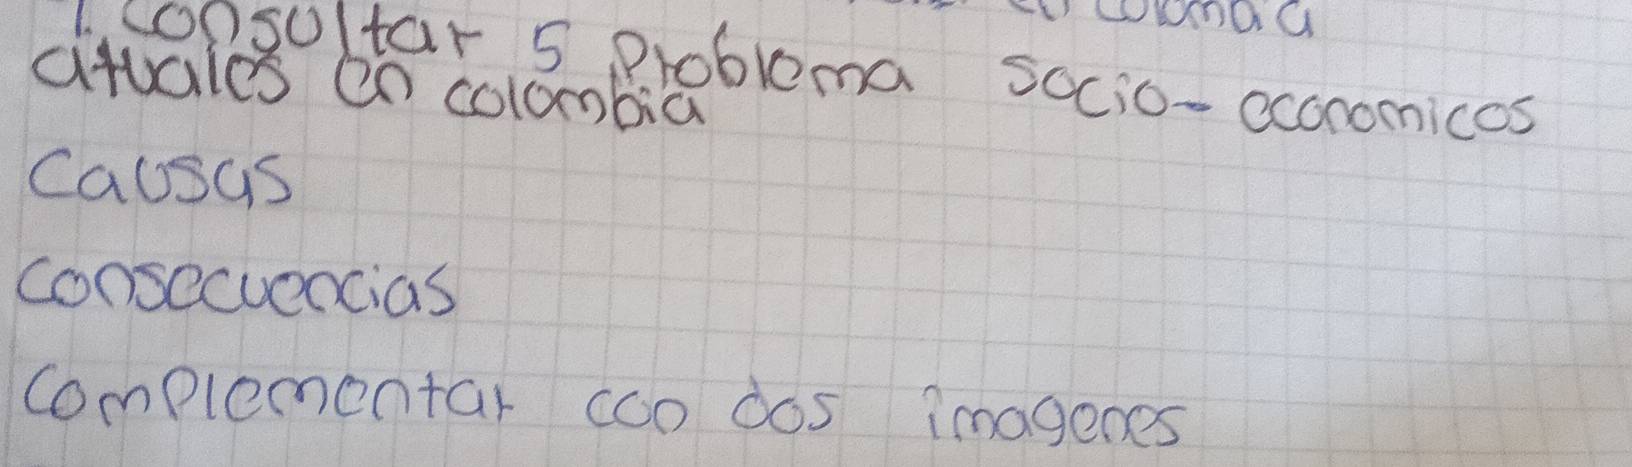 1. consultar 5 Problema socio-economicos
atuales en colombia
Causas
consecuencias
Complementar con dos imagenes